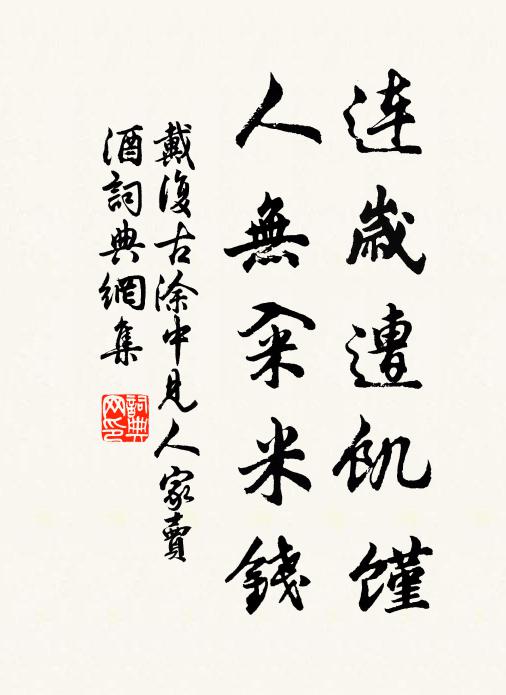 連歲遭飢饉
人無籴米錢
戴復古涂中見人家賣
酒詞典網集
詞典
网印